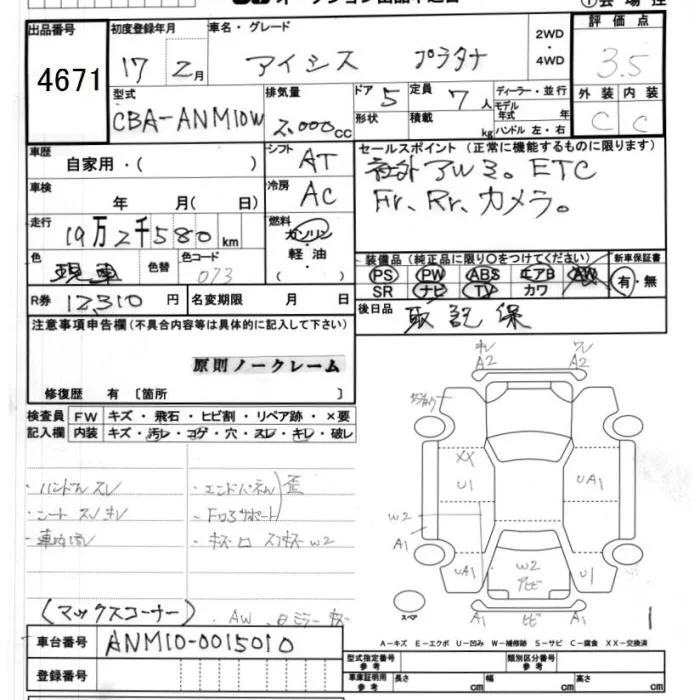 出品番号
4671
初度登録年月
17 年 2月
車名・グレード
アイシス プラタナ
2WD
・
4WD
評価点
3.5
外装 内装
C C
型式
CBA-ANM10W
排気量
2.000cc
ドア 5
形状
定員 7人
積載 kg
ディーラー・並行
モデル年式 年
ハンドル 左・右
車歴
自家用・( )
シフト
AT
車検
年 月( 日)
冷房
AC
走行
19万2千580 km
燃料
ガソリン
・
軽油
( )
色
現車
色替
色コード
073
R券 12,310円
名変期限 月 日
セールスポイント(正常に機能するものに限ります)
社外アルミ。ETC
Fr、Rr、カメラ。
装備品(純正品に限り○をつけてください)
PS PW ABS エアB AW
SR ナビ TV カワ
新車保証書
有・無
後日品
取説 保
注意事項申告欄(不具合内容等は具体的に記入して下さい)
原則ノークレーム
修復歴 有〔箇所 〕
検査員記入欄
FW キズ・飛石・ヒビ割・リペア跡・×要
内装 キズ・汚レ・コゲ・穴・スレ・キレ・破レ
・ハンドルスレ
・シートスレキレ
・エンドパネル
・F ロアサポート
歪
W2
(マックスコーナー)
車台番号
ANM10-0015010
登録番号
A2
A2
XX
U1
UA1
W2
A1
UA1
W2
U1
A1
A1
スペア
1
A-キズ E-エクボ U-凹み W-補修跡 S-サビ C-腐食 XX-交換済
型式指定番号参考
類別区分番号参考
車庫証明用参考
長さ cm
幅 cm
高さ cm